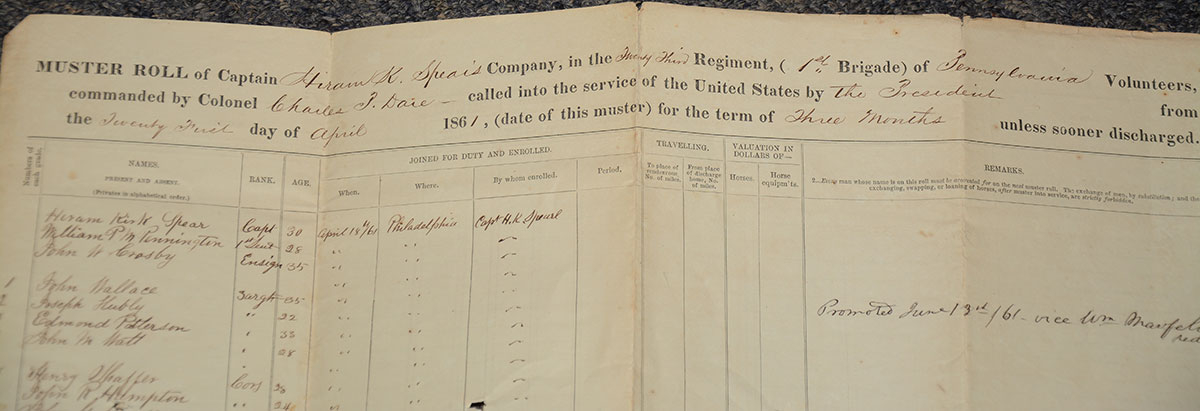 MUSTER ROLL of Captain Hiram K. Spear's Company, in the Twenty Third Regiment, ( 1st Brigade) of Pennsylvania Volunteers,
commanded by Colonel Charles P. Dare called into the service of the United States by the President from
the Twenty First day of April 1861, (date of this muster) for the term of Three Months unless sooner discharged.
Numbers of each grade.
NAMES.
PRESENT AND ABSENT.
(Privates in alphabetical order.)
RANK.
AGE.
JOINED FOR DUTY AND ENROLLED.
When.
Where.
By whom enrolled.
Period.
TRAVELLING.
To place of rendezvous, No. of miles.
From place of discharge home, No. of miles.
VALUATION IN DOLLARS OF—
Horses.
Horse equipm'ts.
REMARKS.
Every man whose name is on this roll must be accounted for on the next muster roll. The exchange of men, by substitution; and the
exchanging, swapping, or loaning of horses, after muster into service, are strictly forbidden.
Hiram Kirk Spear Capt 30 April 18th/61 Philadelphia Capt H.K. Spear
William P. M Pennington 1st Lieut 28 " " "
John W Crosby Ensign 35 " " "
1 John Wallace Sargt 35 " " "
2 Joseph Hubly " 22 " " " Promoted June 13th/61 vice Wm
Edmond Patterson " 33 " " "
John M Watt " 28 " " "
Henry Shaffer Cor 28 " "
John R Kimpton " 24 " "